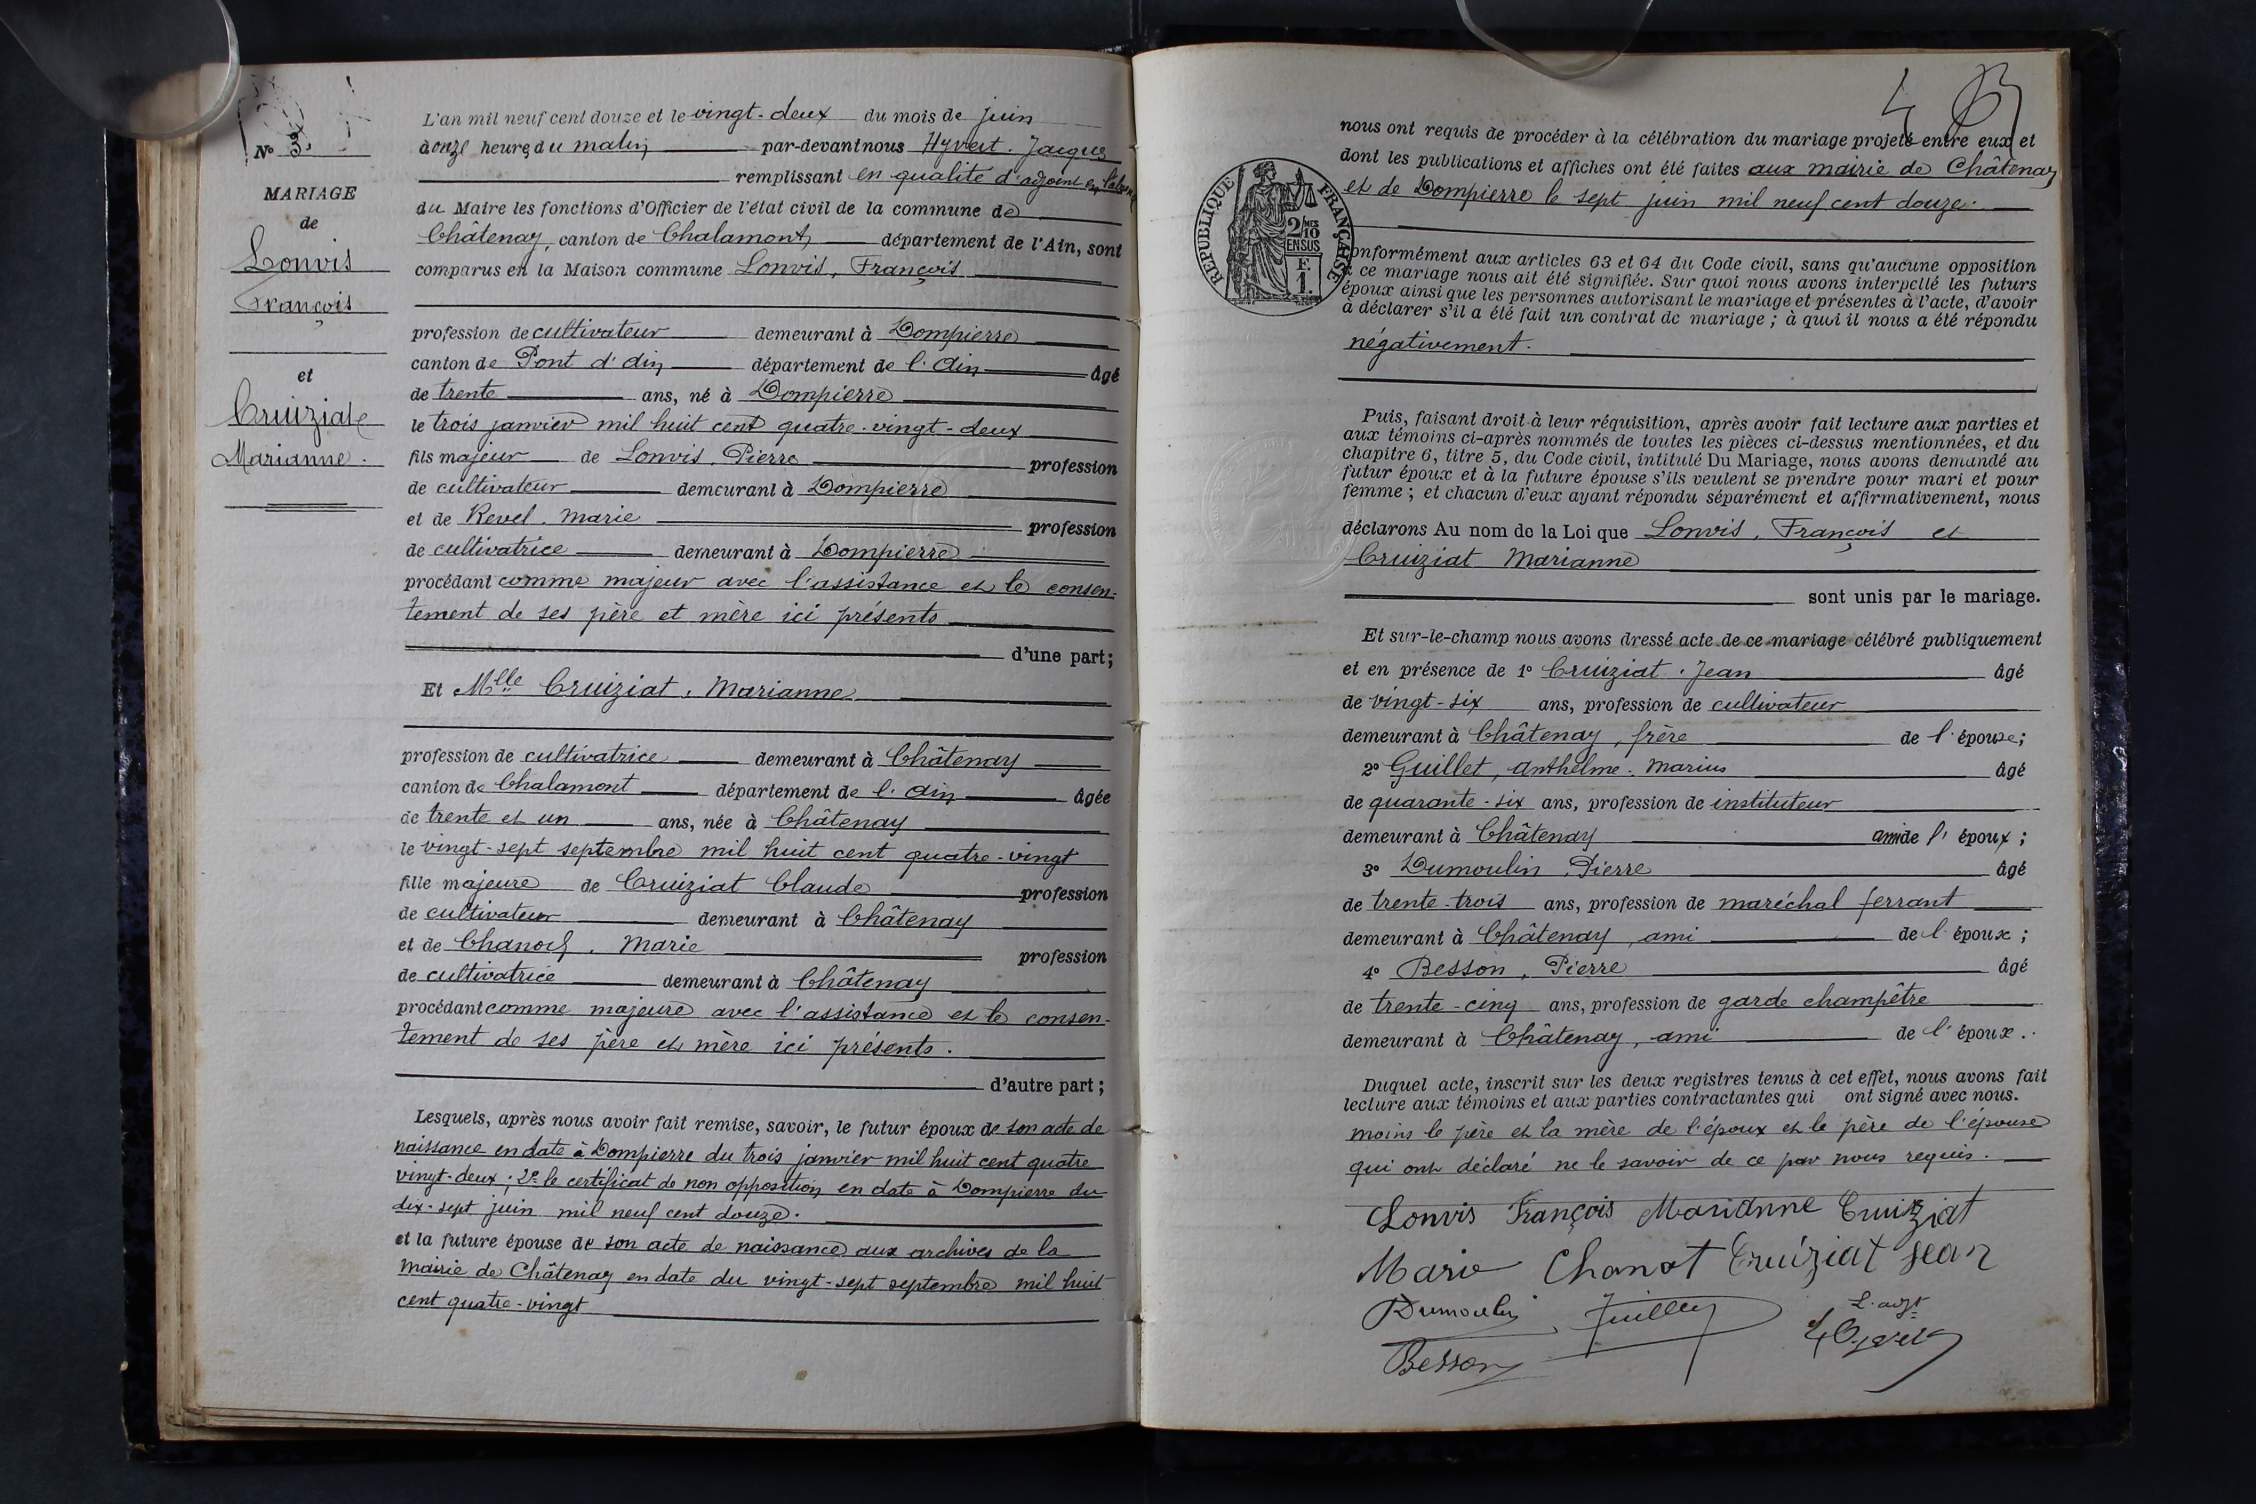 N° 3
MARIAGE
de
Lonvis
François
et
Cruiziat
Marianne.
L'an mil neuf cent douze et le vingt-deux du mois de juin
à onze heures du matin par-devant nous Hyvert. Jacques
remplissant en qualité d'adjoint en
du Maire les fonctions d'Officier de l'état civil de la commune de
Châtenay, canton de Chalamont département de l'Ain, sont
comparus en la Maison commune Lonvis, François
profession de cultivateur demeurant à Dompierre
canton de Pont d'Ain département de l'Ain âgé
de trente ans, né à Dompierre
le trois janvier mil huit cent quatre-vingt-deux
fils majeur de Lonvis. Pierre profession
de cultivateur demeurant à Dompierre
et de Revel. Marie profession
de cultivatrice demeurant à Dompierre
procédant comme majeur avec l'assistance et le consen-
tement de ses père et mère ici présents
d'une part;
Et Mlle Cruiziat, Marianne
profession de cultivatrice demeurant à Châtenay
canton de Chalamont département de l'Ain âgée
de trente et un ans, née à Châtenay
le vingt-sept septembre mil huit cent quatre-vingt
fille majeure de Cruiziat Claude profession
de cultivateur demeurant à Châtenay
et de Marie profession
de cultivatrice demeurant à Châtenay
procédant comme majeure avec l'assistance et le consen-
tement de ses père et mère ici présents.
d'autre part;
Lesquels, après nous avoir fait remise, savoir, le futur époux de son acte de
naissance en date à Dompierre du trois janvier mil huit cent quatre
vingt-deux; 2° le certificat de non opposition en date à Dompierre du
dix-sept juin mil neuf cent douze.
et la future épouse de son acte de naissance aux archives de la
mairie de Châtenay en date du vingt-sept septembre mil huit
cent quatre-vingt
nous ont requis de procéder à la célébration du mariage projeté entre eux et
dont les publications et affiches ont été faites aux mairie de Châtenay
et de Dompierre le sept juin mil neuf cent douze.
RÉPUBLIQUE FRANÇAISE
2/10 EN SUS
F. 1.
conformément aux articles 63 et 64 du Code civil, sans qu'aucune opposition
à ce mariage nous ait été signifiée. Sur quoi nous avons interpellé les futurs
époux ainsi que les personnes autorisant le mariage et présentes à l'acte, d'avoir
à déclarer s'il a été fait un contrat de mariage; à quoi il nous a été répondu
négativement.
Puis, faisant droit à leur réquisition, après avoir fait lecture aux parties et
aux témoins ci-après nommés de toutes les pièces ci-dessus mentionnées, et du
chapitre 6, titre 5, du Code civil, intitulé Du Mariage, nous avons demandé au
futur époux et à la future épouse s'ils veulent se prendre pour mari et pour
femme; et chacun d'eux ayant répondu séparément et affirmativement, nous
déclarons Au nom de la Loi que Lonvis, François et
Cruiziat Marianne
sont unis par le mariage.
Et sur-le-champ nous avons dressé acte de ce mariage célébré publiquement
et en présence de 1° Cruiziat. Jean âgé
de vingt-six ans, profession de cultivateur
demeurant à Châtenay, frère de l'épouse;
2° Guillet, Anthelme. Marius âgé
de quarante-six ans, profession de instituteur
demeurant à Châtenay ami de l'époux;
3° Dumoulin, Pierre âgé
de trente-trois ans, profession de maréchal ferrant
demeurant à Châtenay, ami de l'époux;
4° Besson, Pierre âgé
de trente-cinq ans, profession de garde champêtre
demeurant à Châtenay, ami de l'époux.
Duquel acte, inscrit sur les deux registres tenus à cet effet, nous avons fait
lecture aux témoins et aux parties contractantes qui ont signé avec nous.
moins le père et la mère de l'époux et le père de l'épouse
qui ont déclaré ne le savoir de ce par nous requis.
Lonvis François Marianne Cruiziat
Marie Chanot Cruiziat Jean
Dumoulin Guillet L'adjt
Besson Hyvert